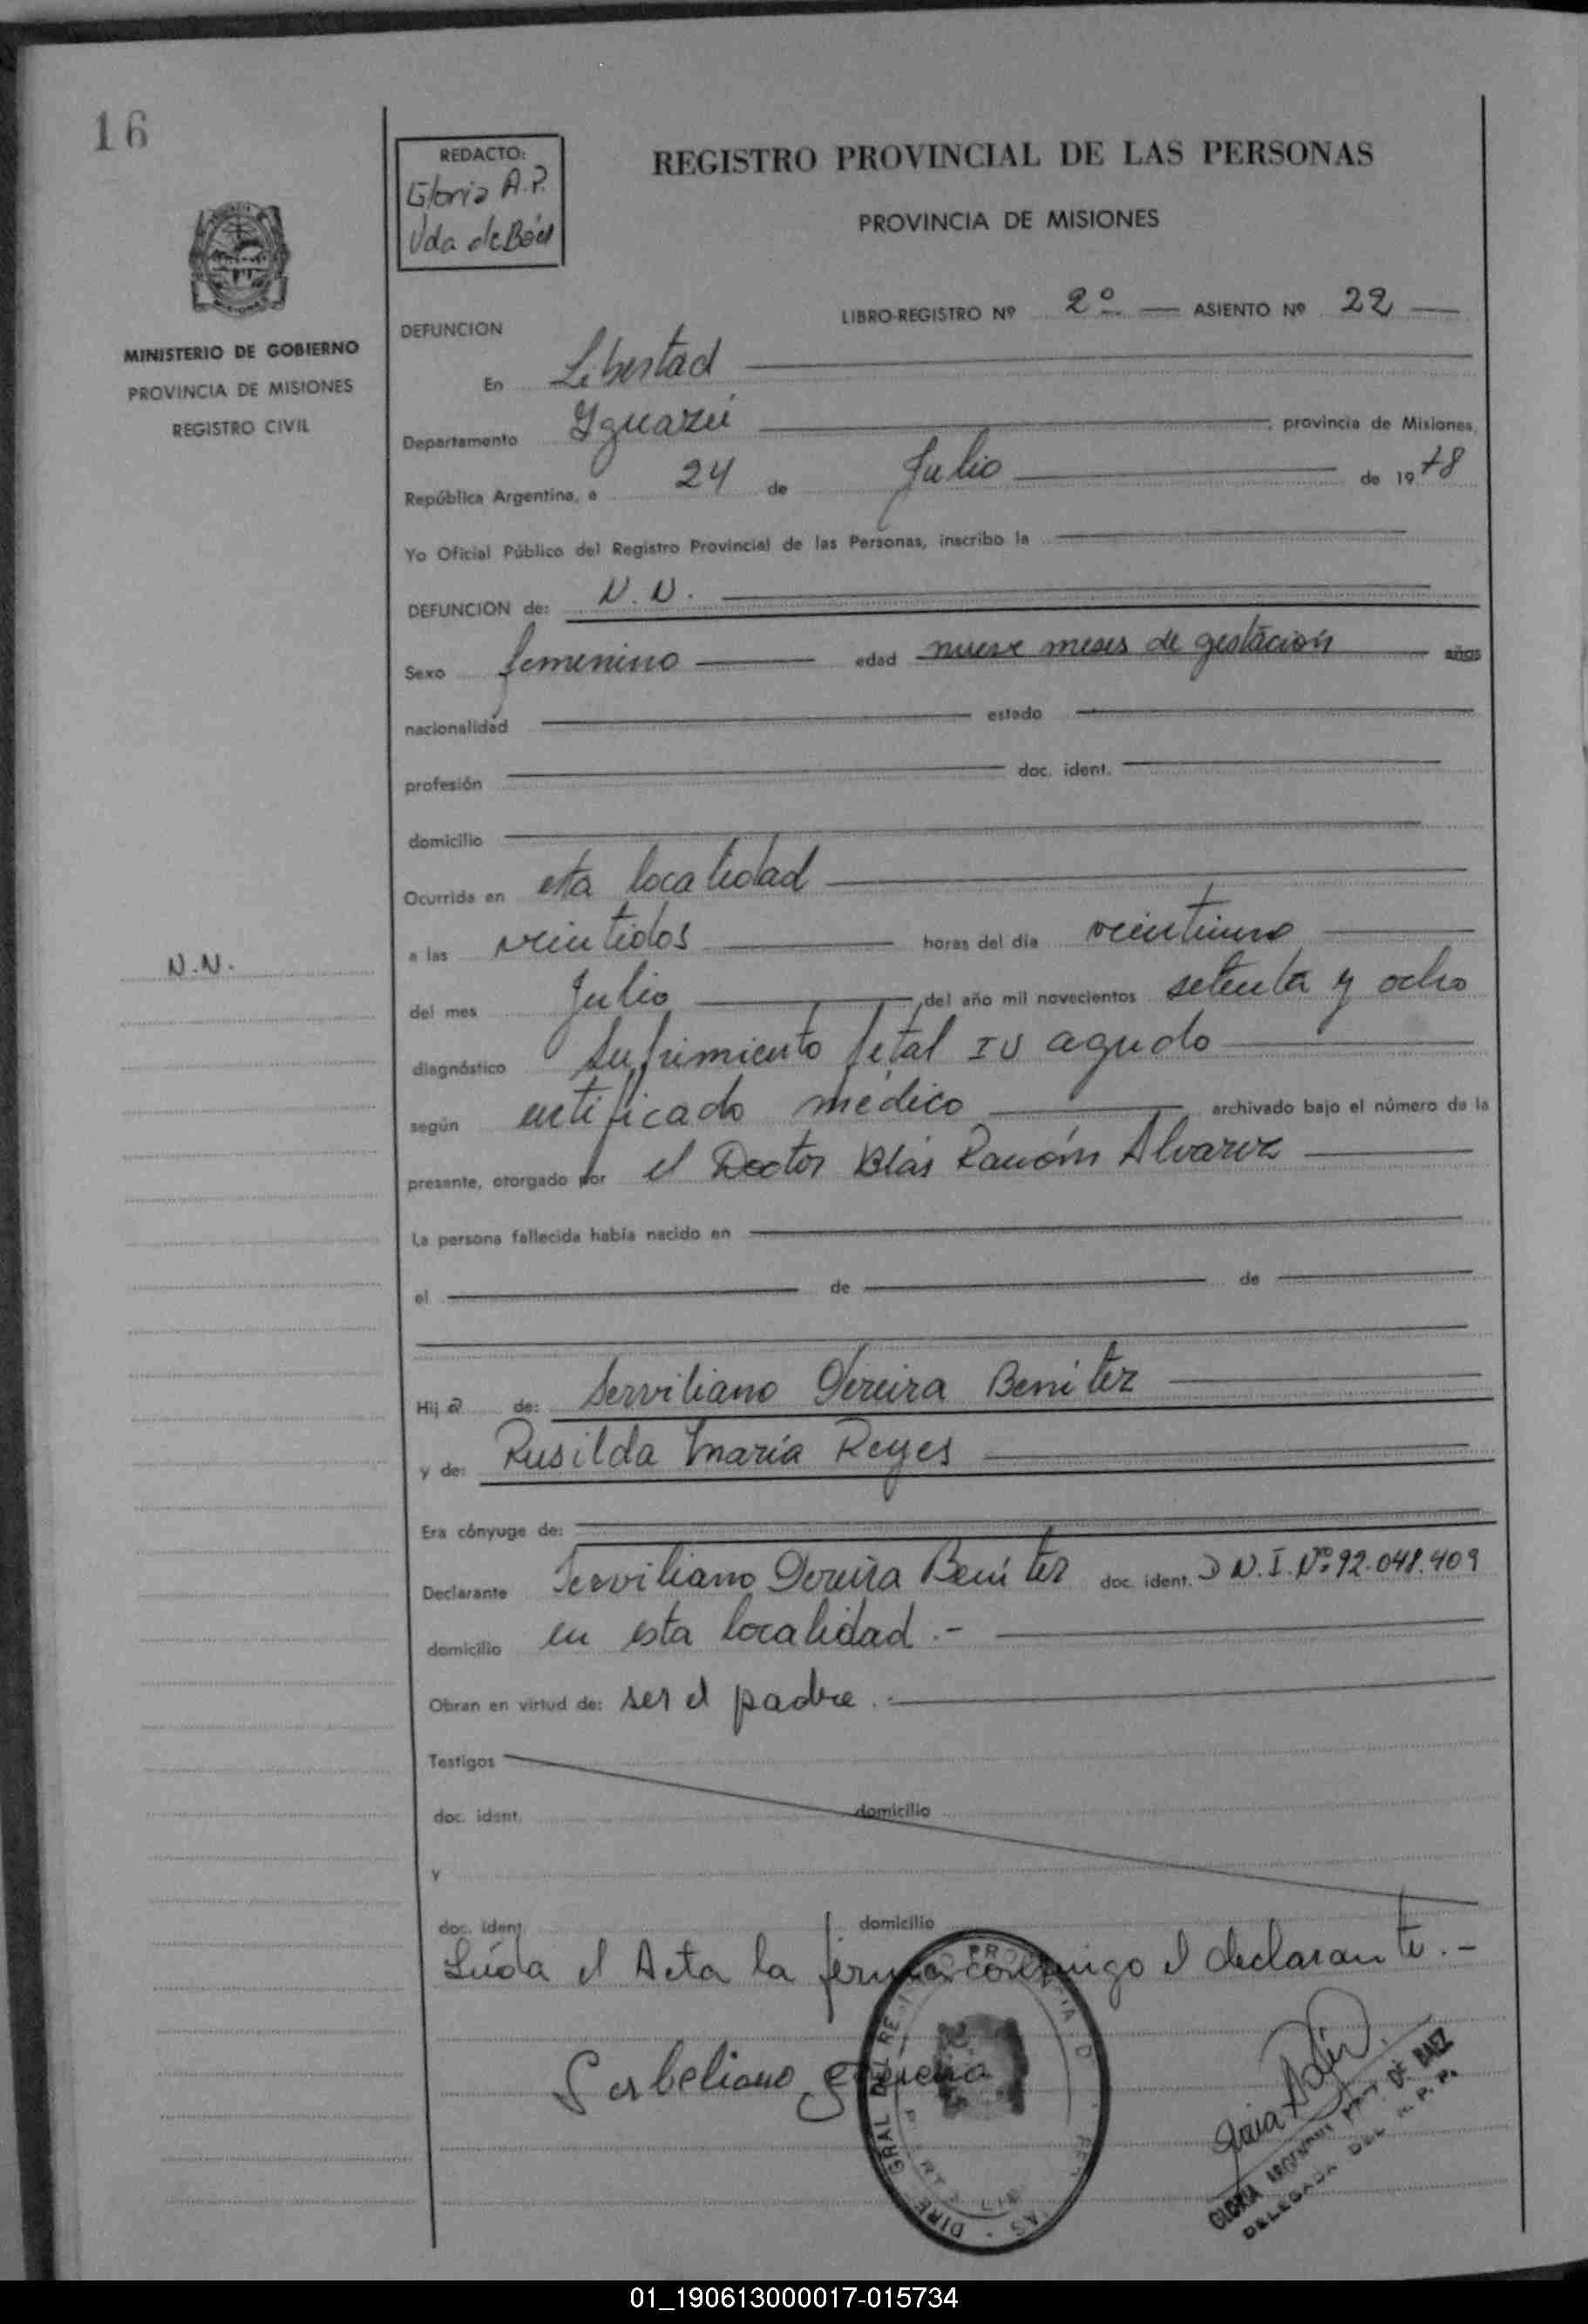 16
REDACTO:
Gloria A.P.
Vda de Báez
REGISTRO PROVINCIAL DE LAS PERSONAS
PROVINCIA DE MISIONES
LIBRO-REGISTRO Nº 2º — ASIENTO Nº 22 —
MINISTERIO DE GOBIERNO
PROVINCIA DE MISIONES
REGISTRO CIVIL
DEFUNCION
En Libertad
Departamento Yguazú provincia de Misiones,
República Argentina, a 24 de Julio de 1978
Yo Oficial Público del Registro Provincial de las Personas, inscribo la
DEFUNCION de: N.N.
Sexo femenino edad nueve meses de gestación años
nacionalidad estado
profesión doc. ident.
domicilio
Ocurrida en esta localidad
a las veintidos horas del día veintiuno
N.N.
del mes Julio del año mil novecientos setenta y ocho
diagnóstico Sufrimiento fetal IU agudo
según certificado médico archivado bajo el número de la
presente, otorgado por el Doctor Blás Ramón Alvarez
La persona fallecida había nacido en
el de de
Hija de: Serviliano Pereira Benitez
y de: Rusilda María Reyes
Era cónyuge de:
Declarante Serviliano Pereira Benitez doc. ident. D.N.I. Nº 92.048.409
domicilio en esta localidad.-
Obran en virtud de: ser el padre.-
Testigos
doc. ident. domicilio
y
doc. ident. domicilio
Leída el Acta la firma conmigo el declarante.-
Serbeliano Pereira
DIRE GRAL DEL RE
GLORIA DE BAEZ
DELEGADA DEL R. P. P.
01_190613000017-015734